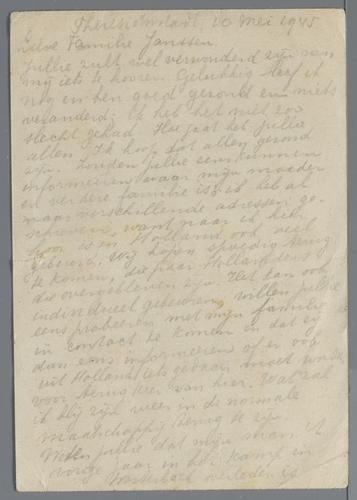 Theresienstadt, 10 Mei 1945
Lieve Familie Janssen.
Jullie zult wel verwonderd zijn van
mij iets te hooren. Gelukkig leef ik
nog en ben goed gezond en niets
veranderd. Ik heb het niet zoo
slecht gehad. Hoe gaat het jullie
allen. Ik hoop dat allen gezond
zijn. Zouden jullie eens kunnen
informeeren waar mijn moeder
en verdere familie is. ik heb al
naar verschillende adressen ge-
schreven, want naar ik hier
hoor is in Holland ook veel
gebeurd. Wij hopen spoedig terug
te komen, die paar Hollanders
die overgebleven zijn. Het kan ook
individueel gebeuren, willen jullie
eens probeeren met mijn familie
in contact te komen en dat zij
dan eens informeeren of er ook
uit Holland iets gedaan moet worden
voor terugkeer van hier. Wat zal
ik blij zijn weer in de normale
maatschappij terug te zijn.
Weten jullie dat mijn man 't
vorige jaar in het kamp in
Westerbork overleden is